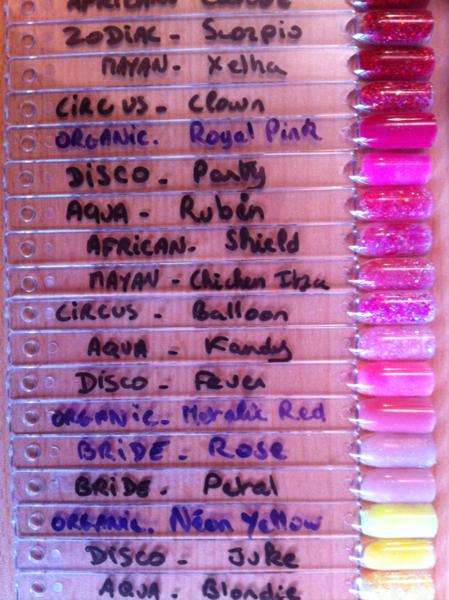 AFRICAN-
ZODIAC - Scorpio
MAYAN - Xelha
CIRCUS - Clown
ORGANIC. Royal Pink
DISCO - Party
AQUA - Rubén
AFRICAN - Shield
MAYAN - Chichen Itza
CIRCUS - Balloon
AQUA - Kandy
DISCO - Fever
ORGANIC - Metalic Red
BRIDE - Rose
BRIDE - Petal
ORGANIC. Néon Yellow
DISCO - Juke
AQUA - Blondie